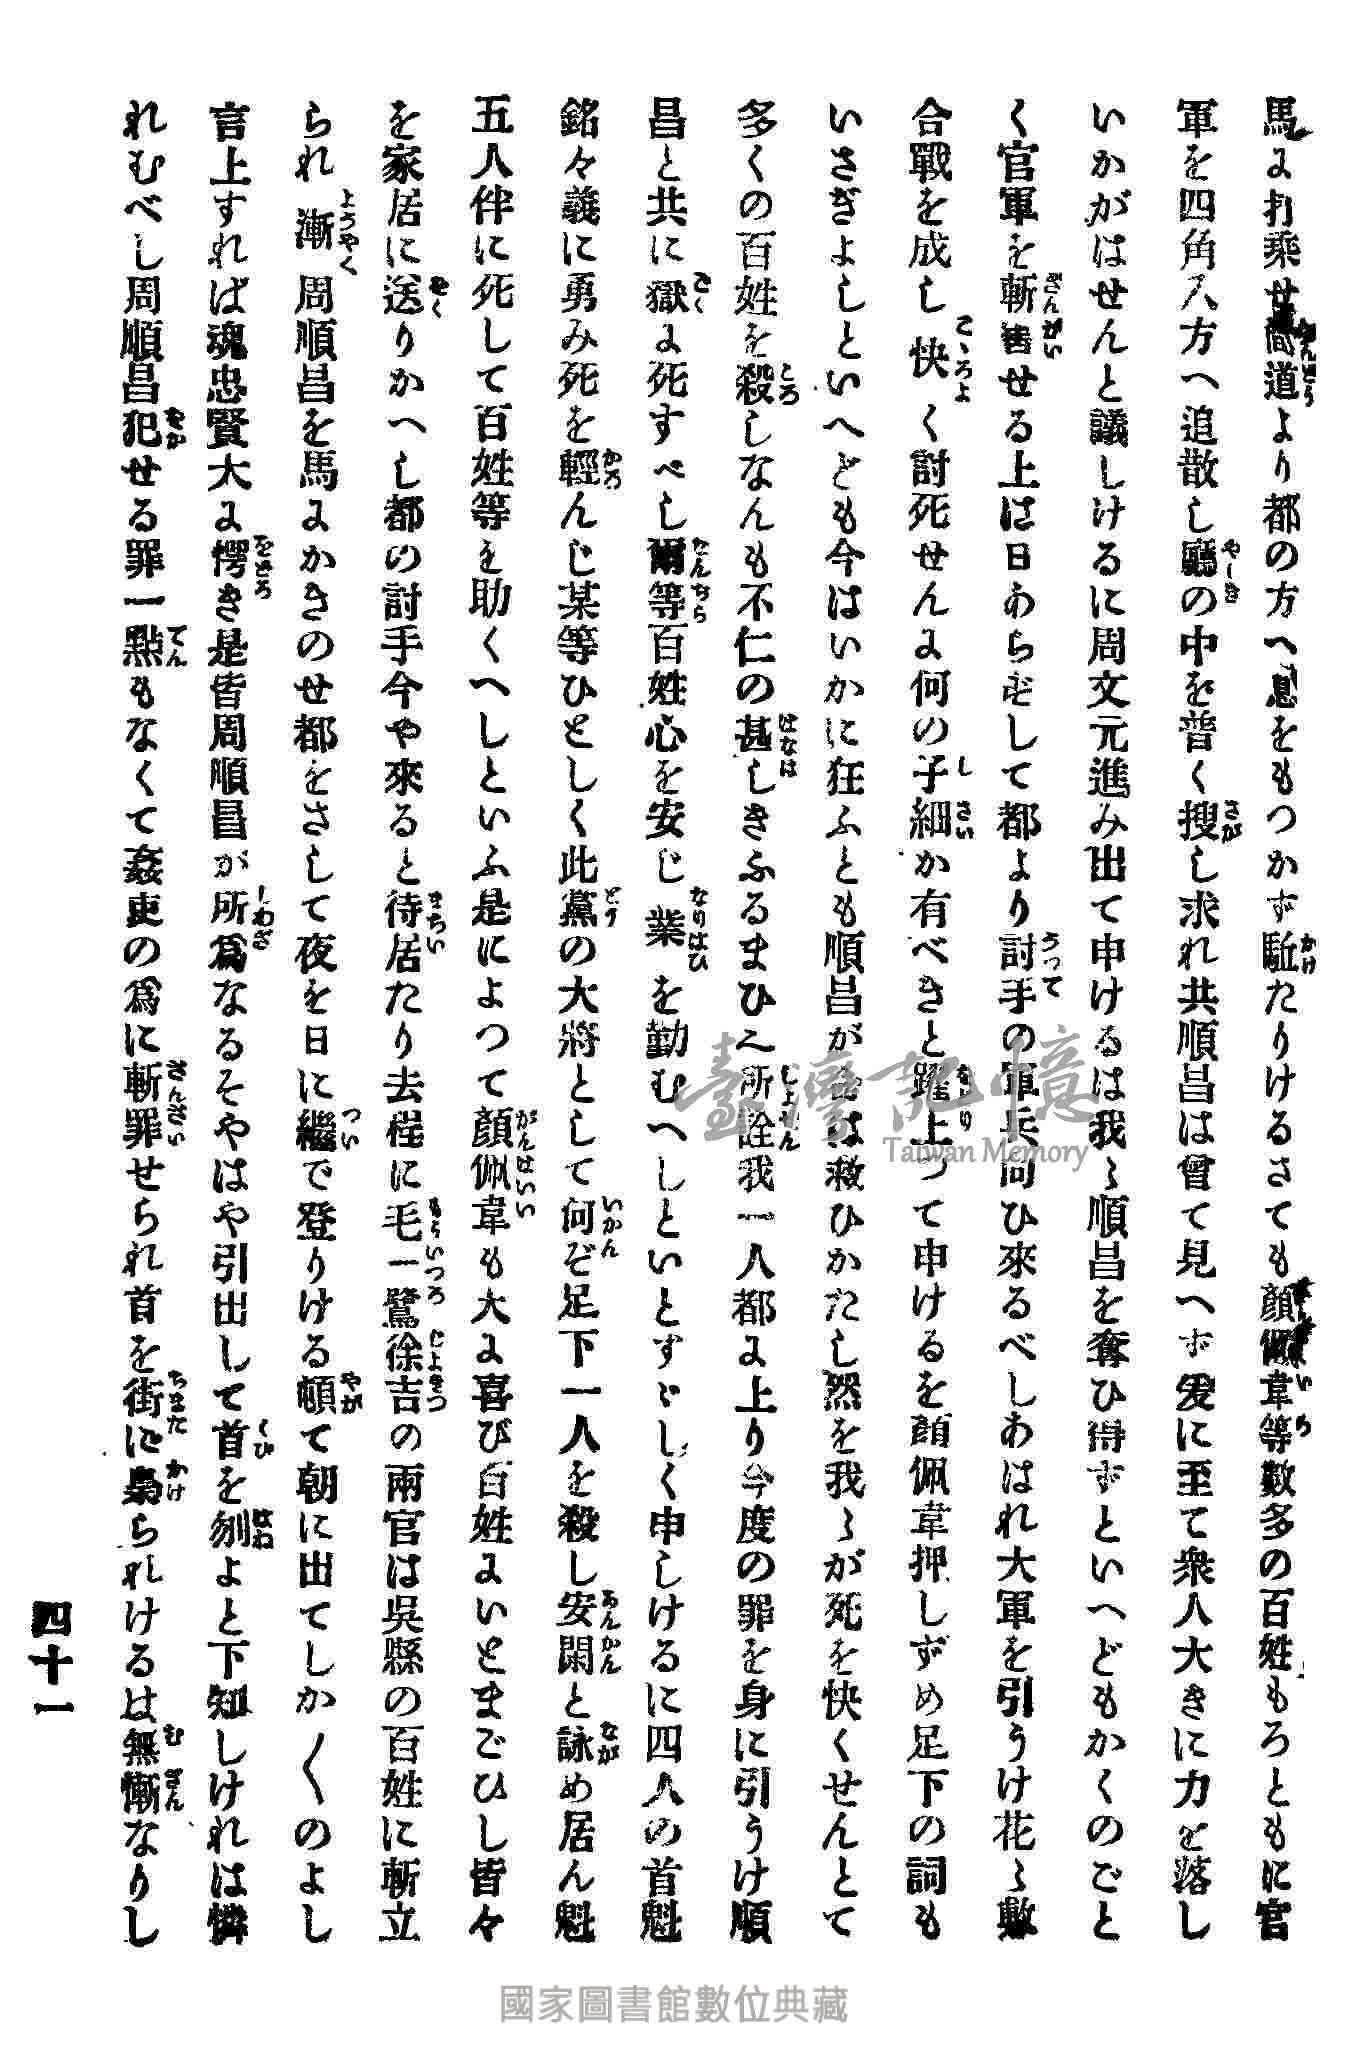 馬に打乘せ間道より都の方へ息をもつかず駈たりけるさても顏佩韋等數多の百姓もろともに官
軍を四角八方へ追散し廳の中を普く搜し求れ共順昌は曾て見へず爰に至て衆人大きに力を落し
いかがはせんと議しけるに周文元進み出て申けるは我々順昌を奪ひ得ずといへどもかくのごと
く官軍を斬害せる上は日あらずして都より討手の軍兵向ひ來るべしあはれ大軍を引うけ花々敷
合戰を成し快く討死せんに何の子細か有べきと躍上つて申けるを顏佩韋押しずめ足下の詞も
いさぎよしといへども今はいかに狂ふとも順昌が命は救ひかたし然を我々が死を快くせんとて
多くの百姓を殺しなんも不仁の甚しきふるまひ也所詮我一人都に上り今度の罪を身に引うけ順
昌と共に獄に死すべし爾等百姓心を安じ業を勤むへしといとすゞしく申しけるに四人の首魁
銘々義に勇み死を輕んじ某等ひとしく此黨の大將として何ぞ足下一人を殺し安閑と詠め居ん魁
五人伴に死して百姓等を助くへしといふ是によつて顏佩韋も大に喜び百姓にいとまごひし皆々
を家居に送りかへし都の討手今や來ると待居たり去程に毛一鷺徐吉の兩官は吳縣の百姓に斬立
られ漸周順昌を馬にかきのせ都をさして夜を日に繼で登りける頓て朝に出てしか〱のよし
言上すれば魂忠賢大に愕き是皆周順昌が所爲なるそやはや引出して首を刎よと下知しけれは憐
れむべし周順昌犯せる罪一點もなくて姦吏の爲に斬罪せられ首を街に梟られけるは無慚なりし
四十一
臺灣記憶
Taiwan Memory
國家圖書館數位典藏